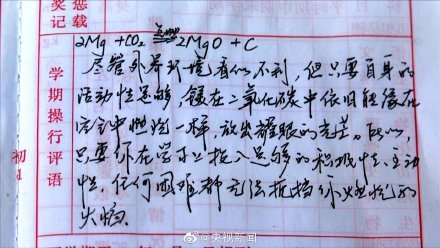 奖惩记载
2Mg +CO₂ 点燃 2MgO + C
学期操行评语
尽管外界环境看似不利，但只要自身的
活动性足够，镁在二氧化碳中依旧能像在
空气中燃烧一样，放出耀眼的光芒。所以，
只要你在学业上投入足够的积极性、主动
性，任何困难都无法抵挡你燃烧的
火焰。
初1
@央视新闻